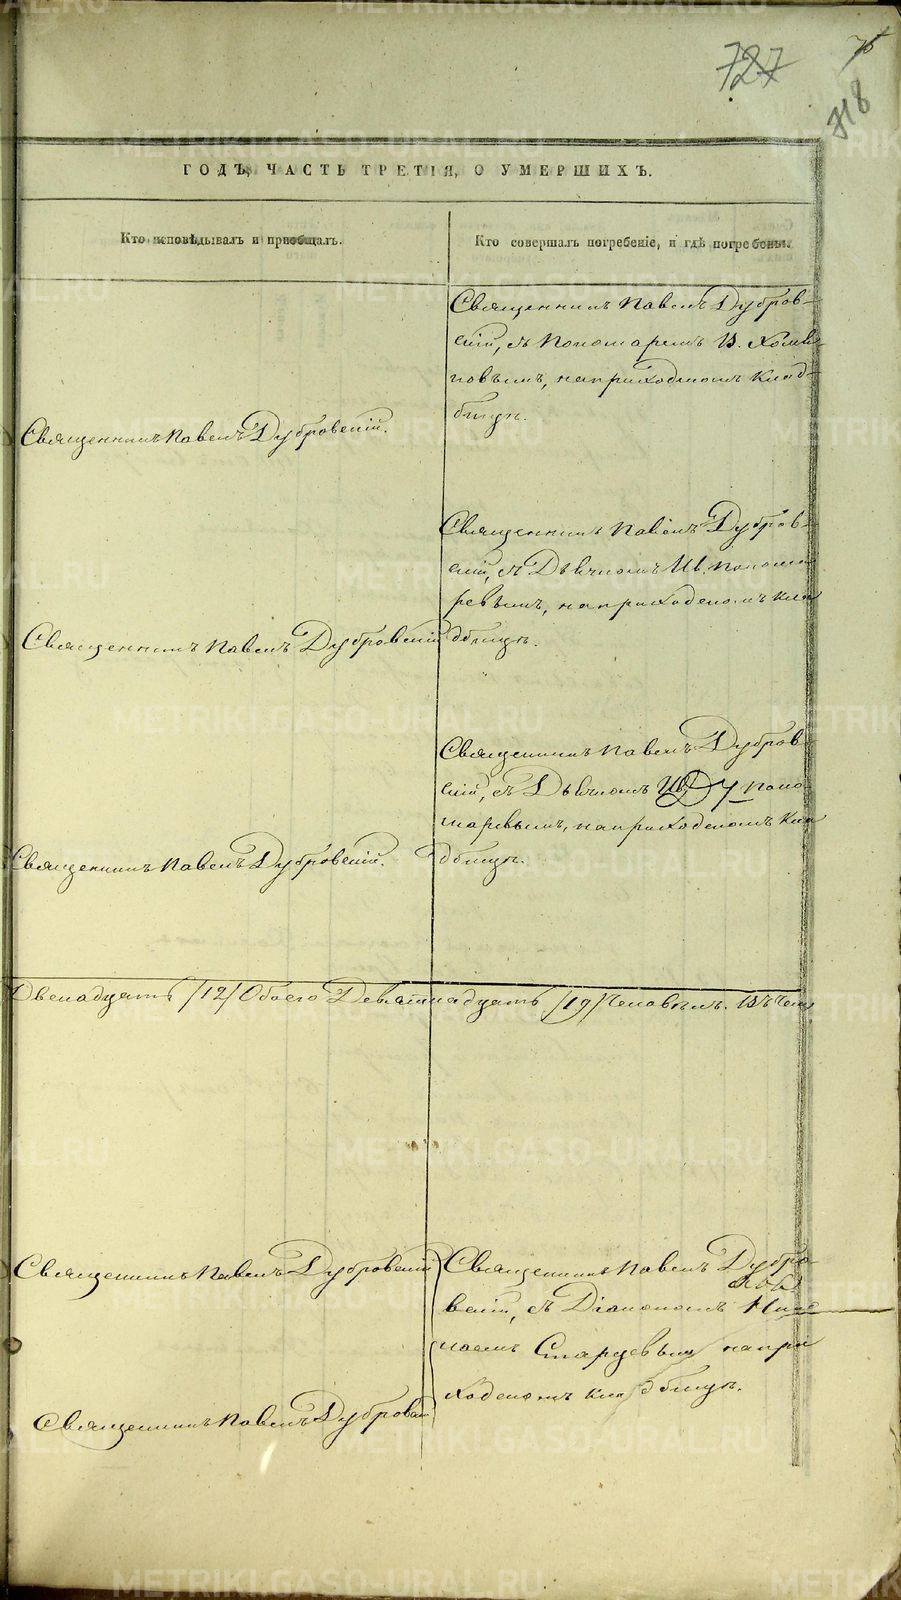 727
75
718
ГОДЪ, ЧАСТЬ ТРЕТІЯ, О УМЕРШИХЪ.
Кто исповѣдывалъ и приобщалъ.
Кто совершалъ погребеніе, и гдѣ погребены.
Священникъ Павелъ Дубровскій.
Священникъ Павелъ Дубров-
скій, съ Пономаремъ В.
новымъ, на приходскомъ клад-
бищѣ.
Священникъ Павелъ Дубровскій
Священникъ Павелъ Дубров-
скій, съ Дьячкомъ Ив. Понома
ревымъ, на приходскомъ кла
дбищѣ.
Священникъ Павелъ Дубровскій.
Священникъ Павелъ Дубров-
скій, съ Дьячкомъ Ив. Поно
маревымъ, на приходскомъ кла
дбищѣ.
Двенадцать /12/ Обоего Девятнадцать /19/ Человѣкъ. Въ чемъ
Священникъ Павелъ Дубровскій
Священникъ Павелъ Дубровскій
Священникъ Павелъ Дубро-
вскій, съ Діакономъ Нико
лаемъ Старцевым на при
ходскомъ кладбищѣ.
METRIKI.GASO-URAL.RU